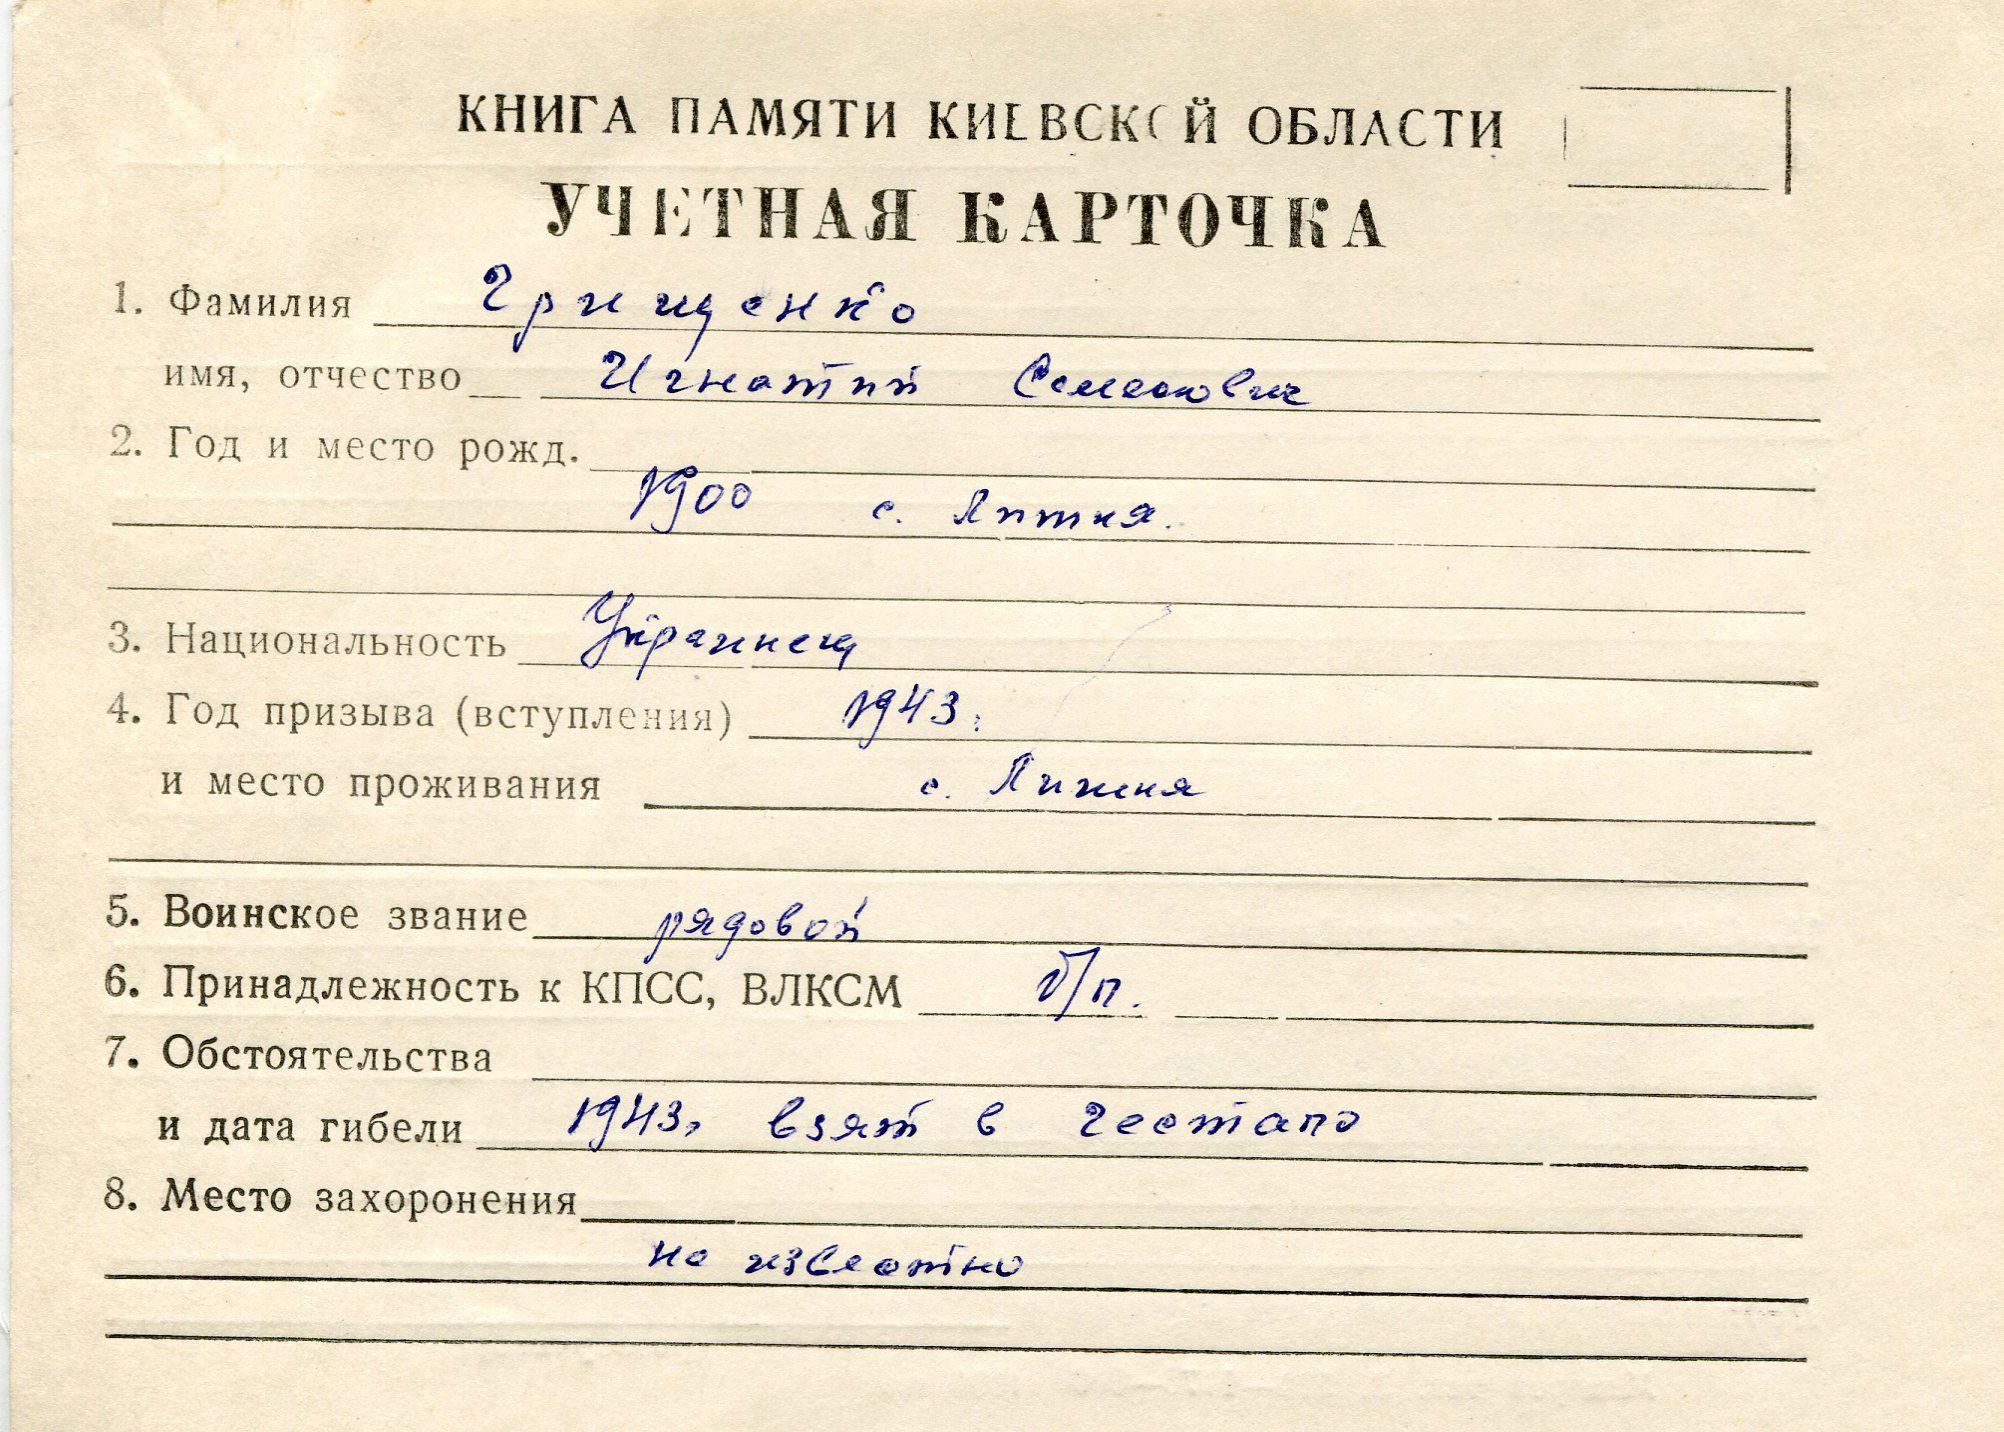 КНИГА ПАМЯТИ КИЕВСКОЙ ОБЛАСТИ
УЧЕТНАЯ КАРТОЧКА
1. Фамилия Грищенко
имя, отчество Игнатий Семенович
2. Год и место рожд.
1900 с. Липня.
3. Национальность Украинец
4. Год призыва (вступления) 1943.
и место проживания с. Липня
5. Воинское звание рядовой
6. Принадлежность к КПСС, ВЛКСМ б/п.
7. Обстоятельства
и дата гибели 1943, взят в гестапо
8. Место захоронения
не известно